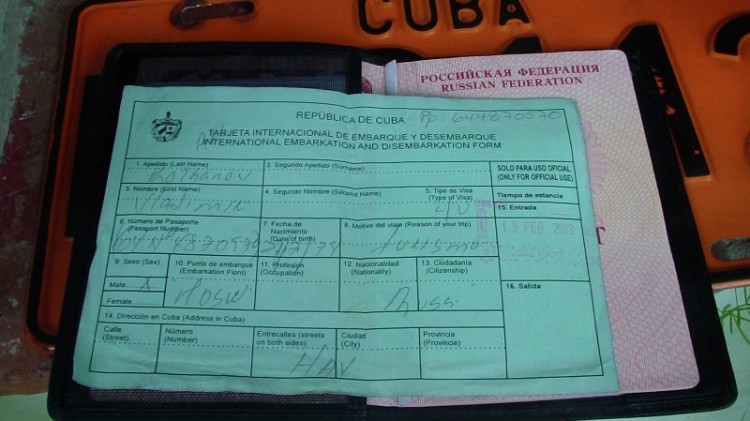 CUBA
РОССИЙСКАЯ ФЕДЕРАЦИЯ
RUSSIAN FEDERATION
REPÚBLICA DE CUBA
TARJETA INTERNACIONAL DE EMBARQUE Y DESEMBARQUE
INTERNATIONAL EMBARKATION AND DISEMBARKATION FORM
1. Apellido (Last Name)
2. Segundo Apellido (Surname)
SOLO PARA USO OFICIAL
(ONLY FOR OFFICIAL USE)
3. Nombre (First Name)
4. Segundo Nombre (Second Name)
5. Tipo de Visa
(Type of Visa)
Tiempo de estancia
15. Entrada
18 FEB 2013
6. Número de Pasaporte
(Passport Number)
7. Fecha de
Nacimiento
(Date of birth)
8. Motivo del viaje (Reason of your trip)
9. Sexo (Sex)
Male X
Female
10. Punto de embarque
(Embarkation Piont)
Mosw
11. Profesión
(Occupation)
12. Nacionalidad
(Nationality)
Russ
13. Ciudadanía
(Citizenship)
16. Salida
14. Dirección en Cuba (Address in Cuba)
Calle
(Street)
Número
(Number)
Entrecalles (streets
on both sides)
Ciudad
(City)
Provincia
(Province)
HAV